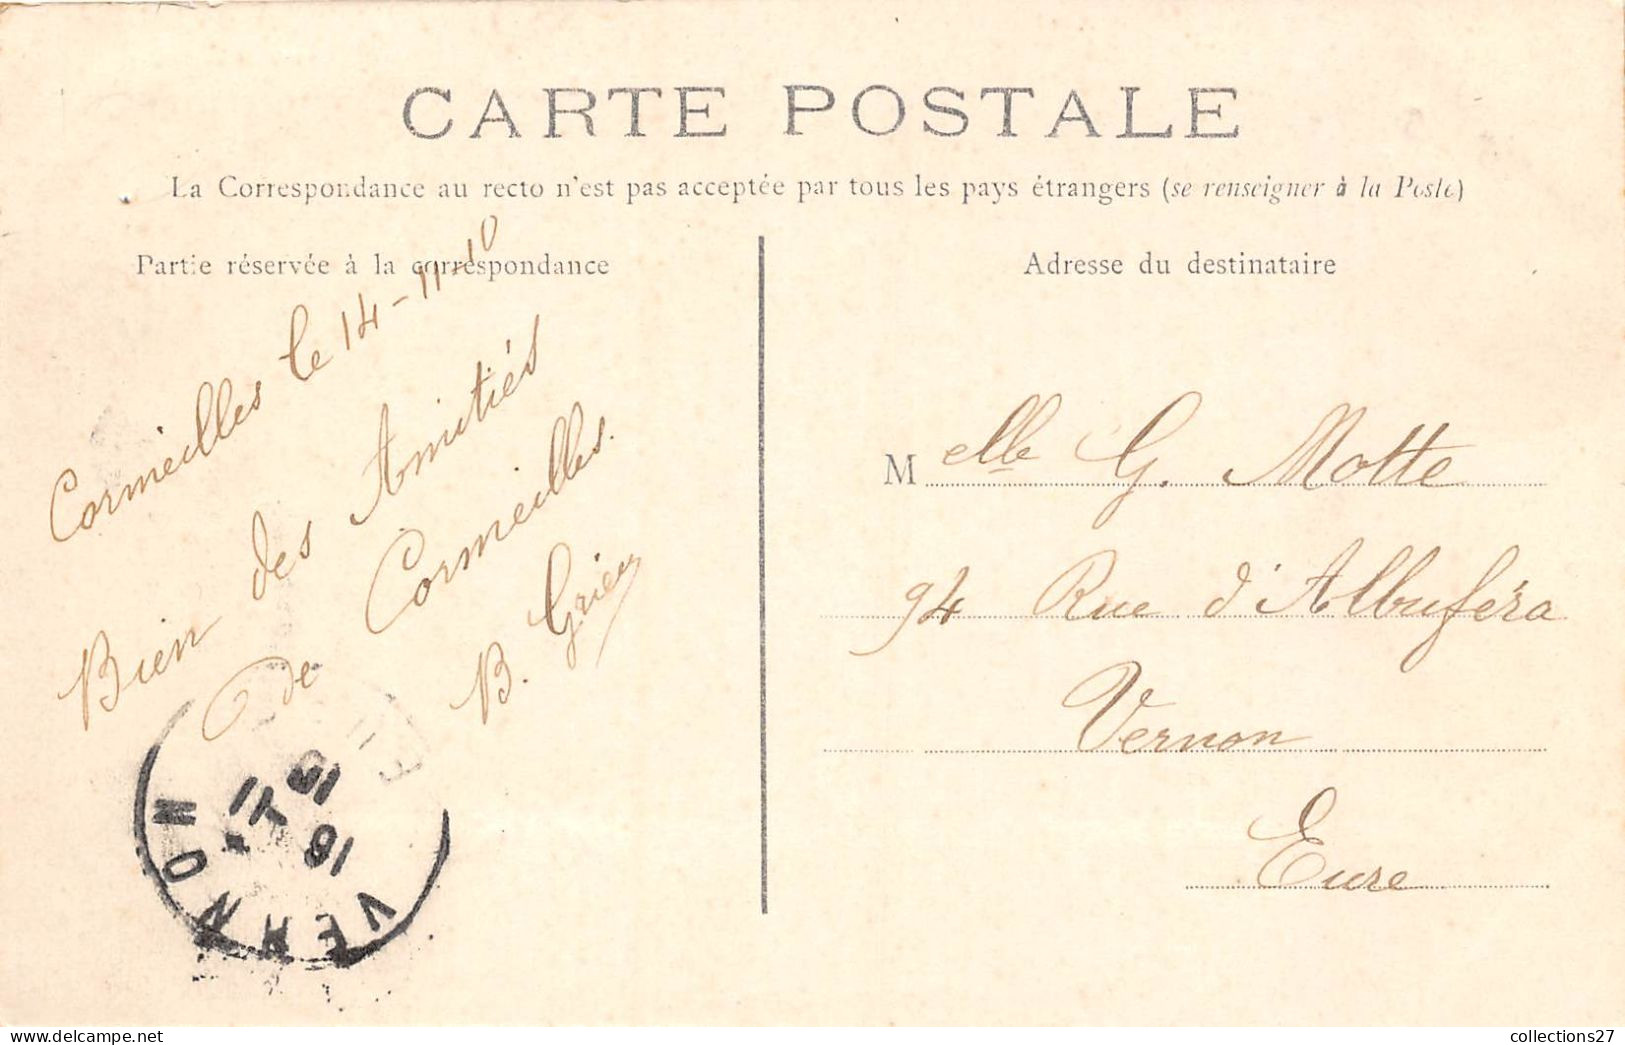 CARTE POSTALE
La Correspondance au recto n'est pas acceptée par tous les pays étrangers (se renseigner à la Poste)
Partie réservée à la correspondance
Cormeilles le 14-11-10
Bien des Amitiés
de Cormeilles.
B. Grieu
Adresse du destinataire
Melle G. Motte
94 Rue d'Albuféra
Vernon
Eure
VERNON
15
11
collections27